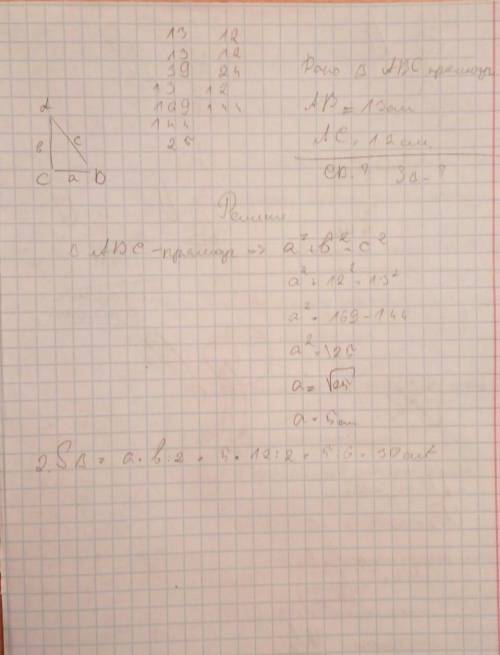 13 12
13 12
39 24
13 12
169 144
144
25
Дано Δ ABC прямоуг
AB = 13 см
AC = 12 см
CB - ? SΔ - ?
A
в c
C a B
Решение
ABC - прямоуг => a² + в² = c²
a² + 12² = 13²
a² = 169 - 144
a² = 25
a = √25
a = 5 см
2. SΔ = a · в : 2 = 5 · 12 : 2 = 5 · 6 = 30 см²